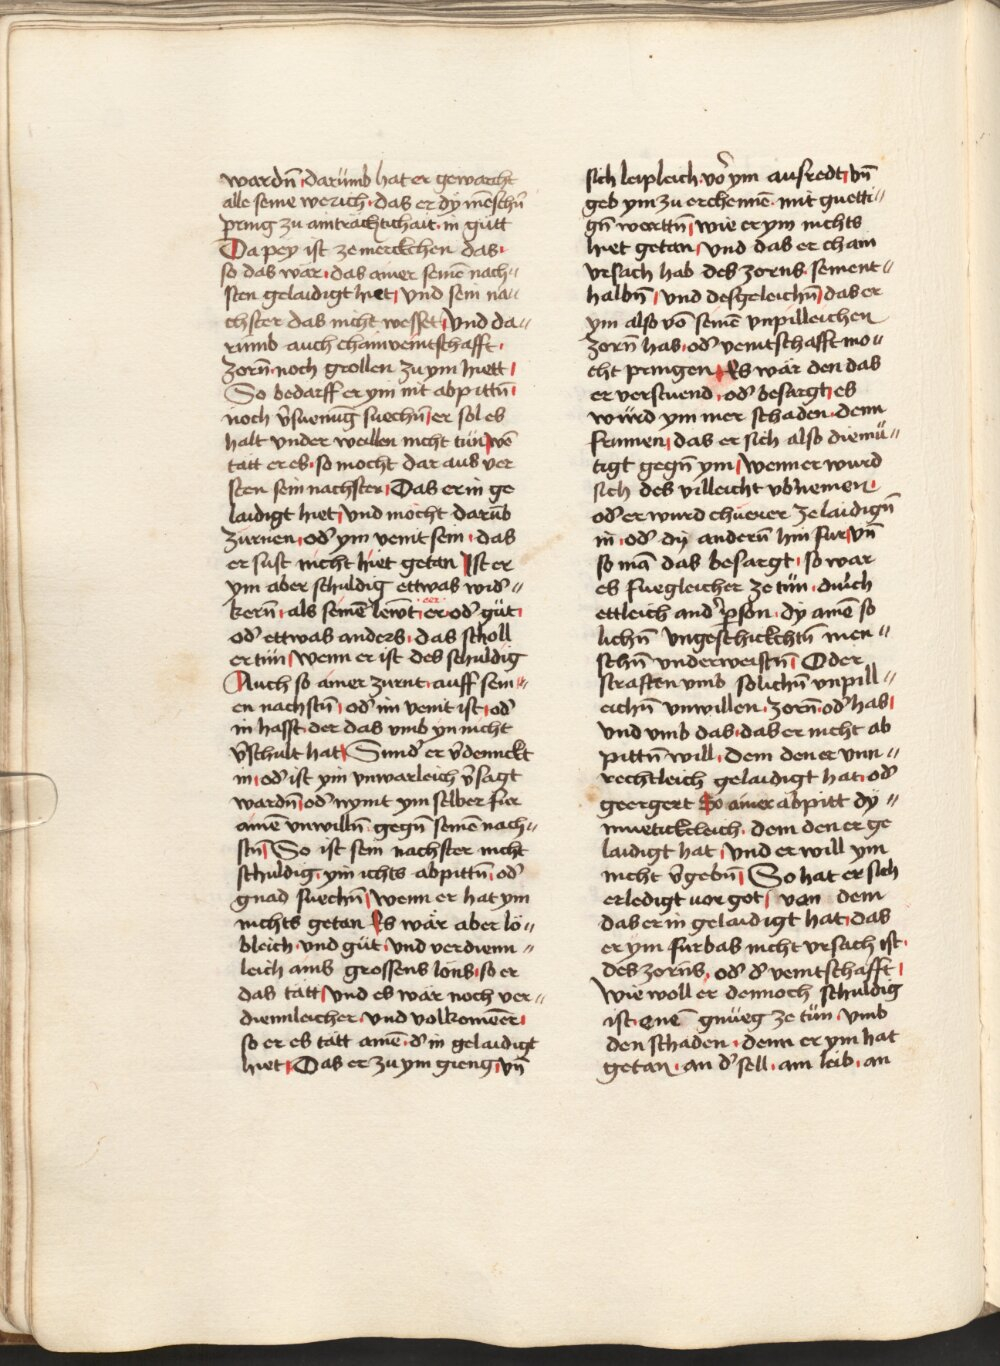 wardn̄ · darümb hat er gewarcht
alle seine werich · das er dÿ mēschn̄
pring zu ainträchtichait · in gütt
Da pey ist ze merckchen das ·
so das war · das ainer seinē nach〃
sten gelaidigt hiet / vnd sein na〃
chster das nicht wesset / vnd da〃
rumb auch chain veintschafft ·
zorn̄ · noch grollen zu ym hiett /
So bedarff er ym nit ab pittn̄ ·
noch v̄suenūg suechn̄ / er sol es
halt vnder weilen nicht tün / wē
tätt er es · so mocht dar aus ver
sten sein nachster / Das er in ge
laidigt hiet / vnd möcht darūb
zürnen · od̓ ym veint sein · das
er süst nicht hiet getan / Ist er
ym aber schuldig ettwas wid̓〃
kern̄ · als seinē lewt · er · od̓ güt ·
od̓ ettwas anders · das scholl
er tün / Wenn er ist des schuldig
Auch so ainer zurnt · auff sein〃
en nachstn̄ / od̓ im veint ist / od̓
in hasst · der das vmb yn nicht
v̄schult hat / Sund̓ er v̄denckt
in / od̓ ist ym vnwarleich v̄sagt
wardn̄ / od̓ nymt ym selber für
ainē vnwilln̄ · gegn̄ seinē nach〃
stn̄ / So ist sein nachster nicht
schuldig · ym ichts ab pittn̄ · od̓
gnad suechn̄ / Wenn er hat ym
nichts getan / Es wär aber lö〃
bleich · vnd güt · vnd verdienn〃
leich ains grossens lons / so er
das tätt / vnd es wär noch ver〃
diennleicher · vnd volkomēer ·
so er es tätt ainē · d̓ in gelaidigt
hiet / Das er zu ym gieng / vn̄
sich leipleich · vor ym ausredt / vn̄
geb ym zu erchennē · mit guetti〃
gn̄ worttn̄ / wie er ym nichts
hiet getan / vnd das er chain
vrsach hab des zorns · sement〃
halbn̄ / vnd desgeleichn̄ / das er
ym also vō seinē vnpilleichen
zorn̄ has · od̓ veintschafft mo〃
cht pringen / Es wär den das
er verstuend · od̓ besargt / es
würd ym mer schaden · denn
frumen / das er sich also diemü〃
tigt gegn̄ ym / Wenn er wurd
sich des villeicht vb̓nemen ·
od̓ er wurd chüener ze laidign̄
in · od̓ dÿ andern̄ hin fur / vn̄
so mā das besargt · so war
es fuegleicher ze tün · durch
ettleich and̓ p̱son · dÿ ainē so
lichn̄ vngeschickchtn̄ men〃
schn̄ vnderweistn̄ / Oder
straften vmb solichn̄ vnpill〃
eichn̄ vnwillen · zorn̄ · od̓ has /
vnd vmb das · das er nicht ab
pittn̄ will · dem den er vnn〃
rechtleich gelaidigt hat · od̓
geergert So ainer abpitt dÿ〃
muetickleich · dem den er ge
laidigt hat / vnd er will ym
nicht v̄gebn̄ / So hat er sich
erledigt vor got / van dem
das er in gelaidigt hat / das
er ym fürbas nicht vrsach ist ·
des zorns · od̓ d̓ veintschafft /
Wie woll er dennoch schuldig
ist · enē gnüeg ze tün · vmb
den schaden · denn er ym hat
getan · an d̓ sell · am leib · an